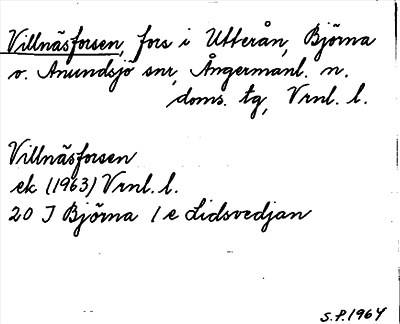 Villnäsforsen, fors i Utterån, Björna
o. Anundsjö snr, Ångermanl. n.
doms. tg, Vrnl. l.
Villnäsforsen
ek (1963) Vrnl. l.
20 J Björna 1 e Lidsvedjan
S.P. 1964